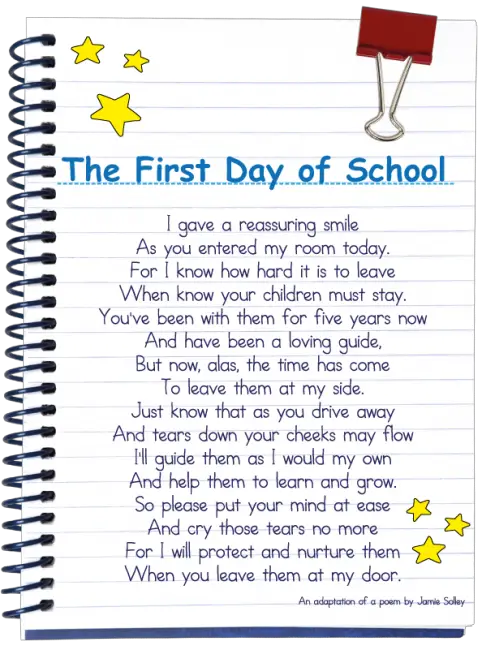 The First Day of School
I gave a reassuring smile
As you entered my room today.
For I know how hard it is to leave
When know your children must stay.
You've been with them for five years now
And have been a loving guide,
But now, alas, the time has come
To leave them at my side.
Just know that as you drive away
And tears down your cheeks may flow
I'll guide them as I would my own
And help them to learn and grow.
So please put your mind at ease
And cry those tears no more
For I will protect and nurture them
When you leave them at my door.
An adaptation of a poem by Jamie Solley